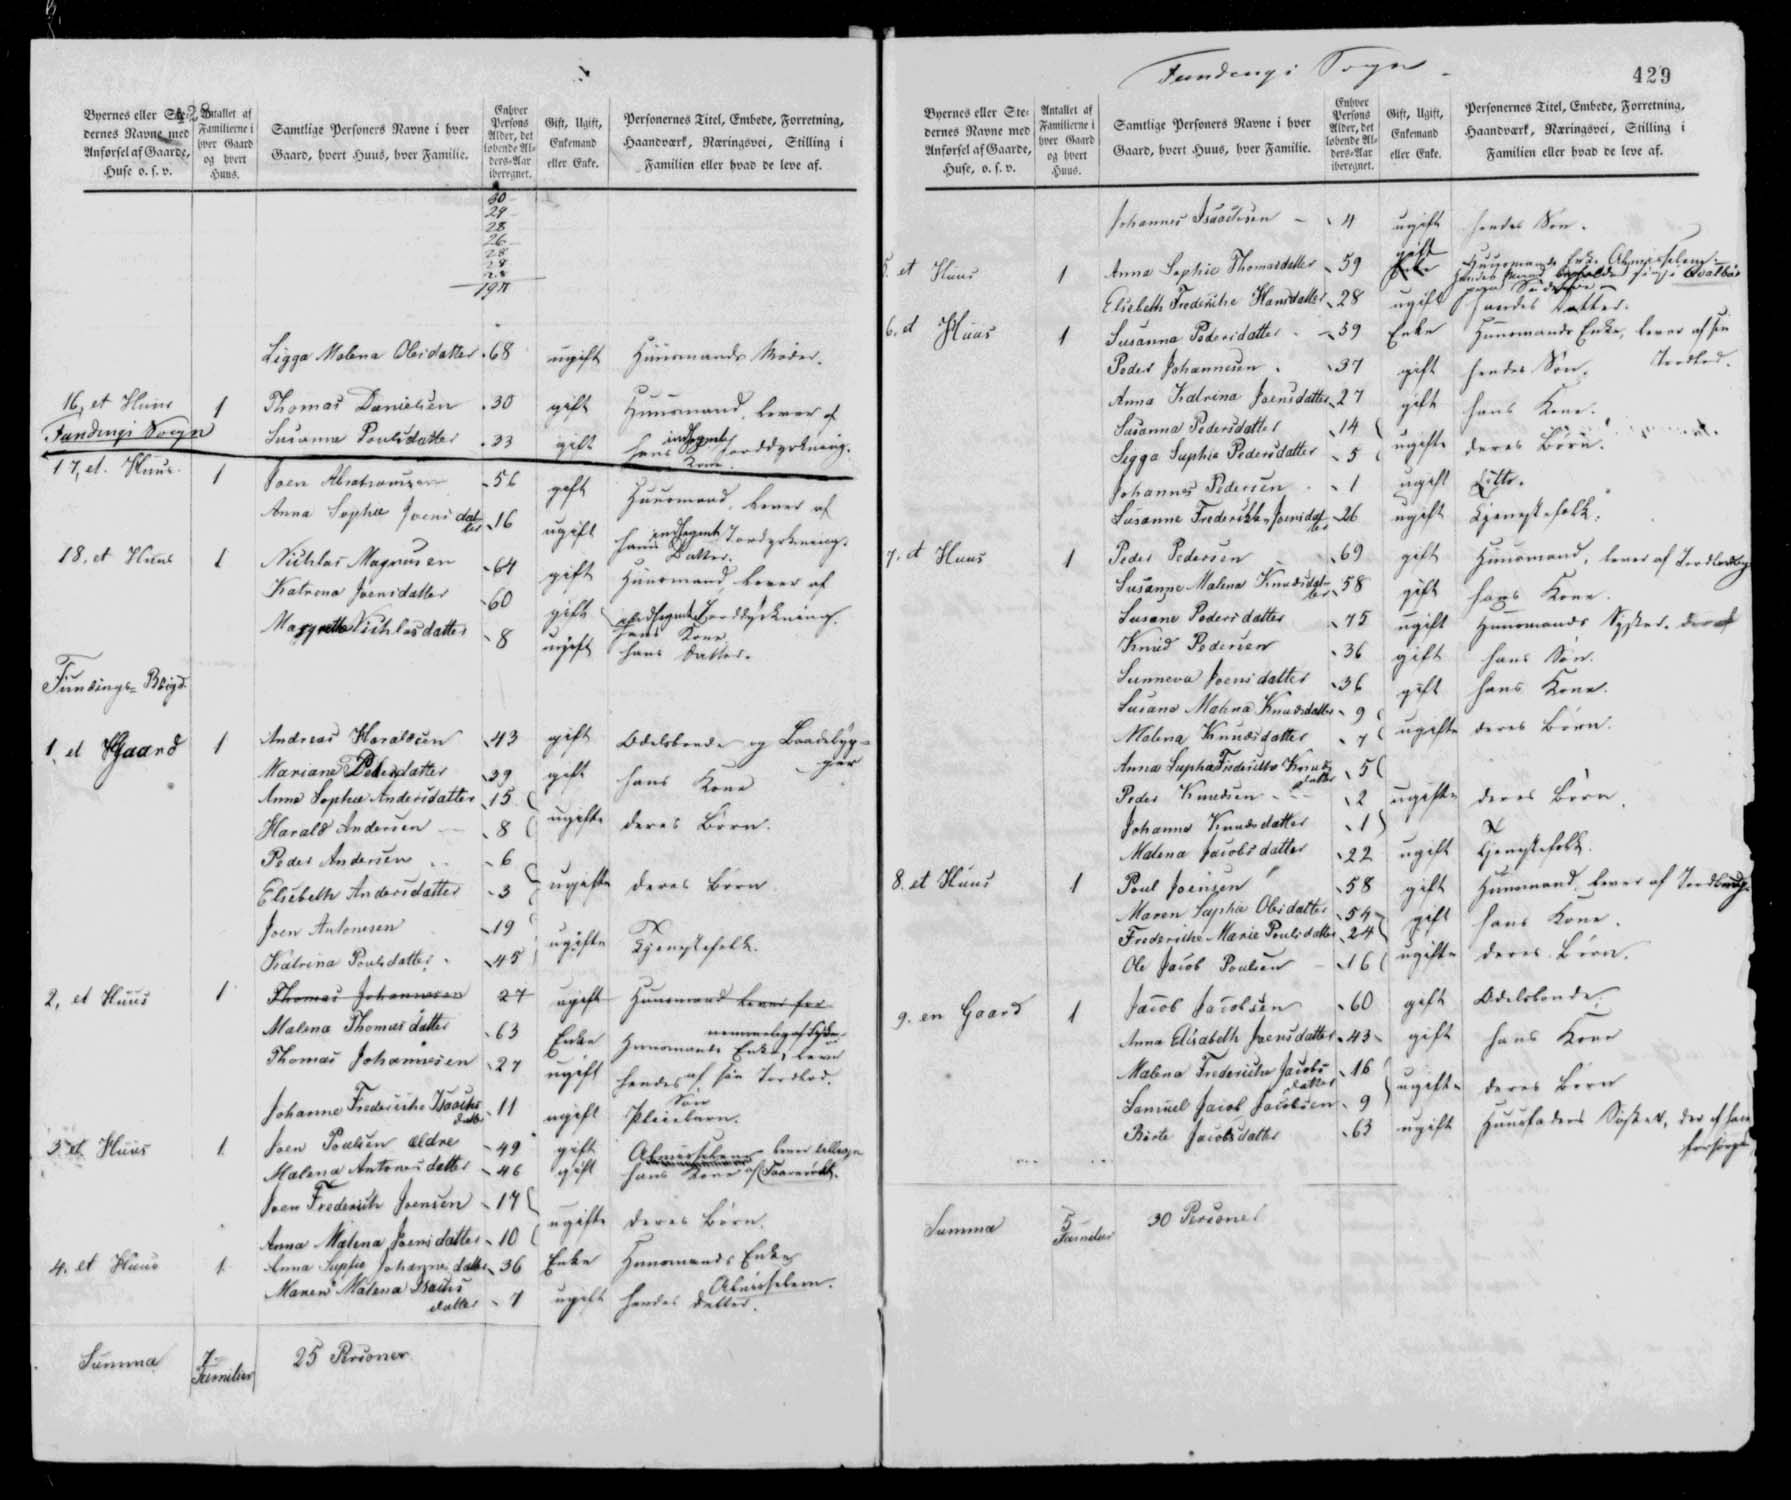 428
Byernes eller Ste-
dernes Navne med
Anførsel af Gaarde,
Huse o. s. v.
Antallet af
Familierne i
hver Gaard
og hvert
Huus.
Samtlige Personers Navne i hver
Gaard, hvert Huus, hver Familie.
Enhver
Persons
Alder, det
løbende Al-
ders-Aar
iberegnet.
Gift, Ugift,
Enkemand
eller Enke.
Personernes Titel, Embede, Forretning,
Haandværk, Næringsvei, Stilling i
Familien eller hvad de leve af.
30
29
28
26
28
28
28
Ligga Malena Olesdatter 68 ugift Huusmands Moder.
16, et Huus 1 Thomas Danielsen 30 gift Huusmand, lever af
Fundings Sogn Susanna Poulsdatter 33 gift hans Jorddyrkning.
Kone.
17, et Huus 1 Joen Abrahamsen 56 gift Huusmand, lever af
Anna Sophie Joensdat-
ter 16 ugift hans Datter. Jordyrkning.
18, et Huus 1 Nichlas Magnusen 64 gift Huusmand, lever af
Katrina Joensdatter 60 gift Jorddyrkning.
hans Kone
Magrette Nichlasdatter 8 ugift hans Datter.
Fundings Bøigd.
1, et Gaard 1 Andreas Haraldsen 43 gift Odelsbonde og Baadebyg-
ger
Mariane Pedersdatter 39 gift hans Kone
Anna Sophie Andersdatter 15
Harald Andersen 8 ugifte deres Børn.
Peder Andersen 6
Elsebeth Andersdatter 3 ugifte deres Børn
Joen Antonesen 19
Katrina Poulsdatter 45 ugifte Tjenestefolk.
2, et Huus 1 Thomas Johannesen 27 ugift Huusmand lever for
Malena Thomasdatter 63 Enke Huusmands Enke, lever
Thomas Johannesen 27 ugift hendes af sin Jordlod.
Søn
Johanne Frederiche Isachs
datter 11 ugift Pleiebarn.
3, et Huus 1 Joen Poulsen ældre 49 gift Almisselem
Malena Antonesdatter 46 gift hans Kone
Joen Frederich Joensen 14
Anna Malena Joensdatter 10 ugifte deres Børn.
4. et Huus 1 Anna Sophie Johannesdatter 36 Enke Huusmands Enke
Almisselem.
Maren Malena Isachs
datter 7 ugift hendes Datter.
Summa 7
Familier 25 Personer
Fundings Sogn
429
Byernes eller Ste-
dernes Navne med
Anførsel af Gaarde,
Huse, o. s. v.
Antallet af
Familierne i
hver Gaard
og hvert
Huus.
Samtlige Personers Navne i hver
Gaard, hvert Huus, hver Familie.
Enhver
Persons
Alder, det
løbende Al-
ders-Aar
iberegnet.
Gift, Ugift,
Enkemand
eller Enke.
Personernes Titel, Embede, Forretning,
Haandværk, Næringsvei, Stilling i
Familien eller hvad de leve af.
Johannes Isachsen 4 ugift hendes Søn.
5. et Huus 1 Anna Sophie Thomasdatter 59 gift Huusmands Enke Almisselem.
Elsebeth Frederiche Hansdatter 28 ugift hendes Datter.
6. et Huus 1 Susanna Pedersdatter 59 Enke Huusmands Enke, lever af sin
Jordlod.
Peder Johannesen 37 gift hendes Søn.
Anna Katrina Joensdatter 27 gift hans Kone.
Susanna Pedersdatter 14
Ligga Sophie Pedersdatter 5 ugifte deres Børn.
Johannes Pedersen 1 ugift Ditto.
Susanne Frederikke Joensdat-
ter 26 ugift Tjenestefolk.
7. et Huus 1 Peder Pedersen 69 gift Huusmand, lever af
Susanne Malena Knudsdat-
ter 58 gift hans Kone.
Susane Pedersdatter 75 ugift Huusmands Syster.
Knud Pedersen 36 gift hans Søn.
Sunneva Joensdatter 36 gift hans Kone.
Susane Malena Knudsdatter 9
Malena Knudsdatter 7 ugifte deres Børn.
Anna Sophie Frederikke Knuds
datter 5
Peder Knudsen 2 ugifte deres Børn.
Johanna Knudsdatter 1
Malena Jacobsdatter 22 ugift Tjenestefolk.
8. et Huus 1 Poul Joensen 58 gift Huusmand, lever af
Maren Sophie Olesdatter 54 gift hans Kone.
Frederiche Marie Poulsdatter 24
Ole Jacob Poulsen 16 ugifte deres Børn.
9. en Gaard 1 Jacob Jacobsen 60 gift Odelsbonde.
Anna Elisabeth Joensdatter 43 gift hans Kone
Malena Frederiche Jacobs
datter 16
Samuel Jacob Jacobsen 9 ugifte deres Børn
Birte Jacobsdatter 63 ugift Huusfaders Søster, der af ham
forsørges
Summa 5
Familier 30 Personer